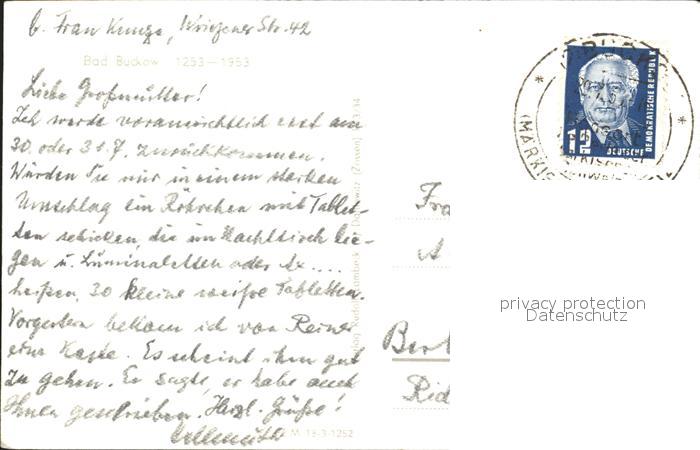 b. Frau Kunze, Wriezener Str. 42
Bad Buckow 1253—1953
Liebe Großmutter!
Ich werde voraussichtlich erst am
30. oder 31.7. zurückkommen.
Würden Sie mir in einem starken
Umschlag ein Röhrchen mit Tablet-
ten schicken, die im Nachttisch lie-
gen u. Luminaletten oder Ax....
heißen, 30 kleine weiße Tabletten.
Vorgestern bekam ich von Reiner
eine Karte. Es scheint ihm gut
zu gehen. Er sagte, er habe auch
Ihnen geschrieben. Herzl. Grüße!
M 18-3-1252
Fra
A
Berl
Rid
12
DEUTSCHE
DEMOKRATISCHE REPUBLIK
(MÄRKISCHE
privacy protection
Datenschutz